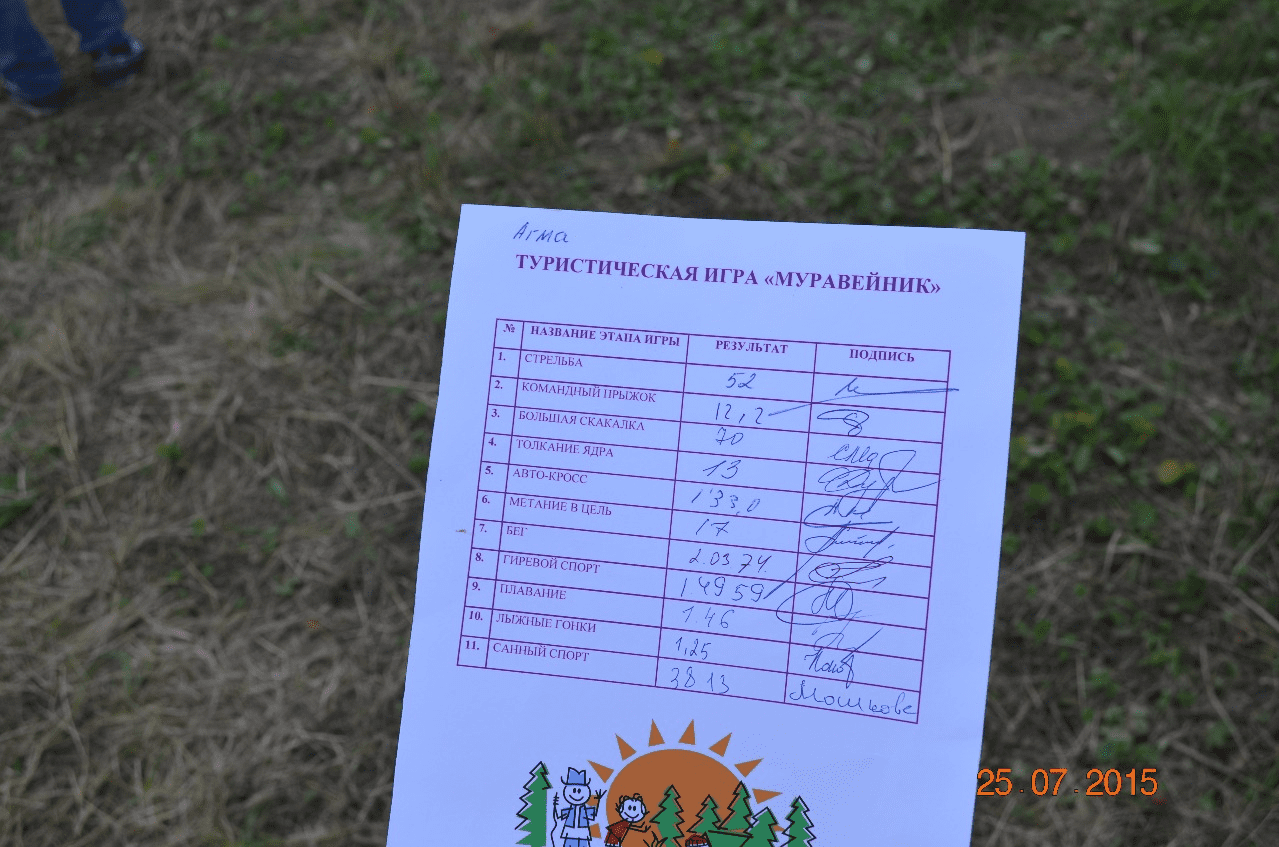 Агма
ТУРИСТИЧЕСКАЯ ИГРА «МУРАВЕЙНИК»
№ НАЗВАНИЕ ЭТАПА ИГРЫ РЕЗУЛЬТАТ ПОДПИСЬ
1. СТРЕЛЬБА 52
2. КОМАНДНЫЙ ПРЫЖОК 12,2
3. БОЛЬШАЯ СКАКАЛКА 70
4. ТОЛКАНИЕ ЯДРА 13
5. АВТО-КРОСС 1'33,0
6. МЕТАНИЕ В ЦЕЛЬ 17
7. БЕГ 2.03 74.
8. ГИРЕВОЙ СПОРТ 1 49 59
9. ПЛАВАНИЕ 1.46
10. ЛЫЖНЫЕ ГОНКИ 1,25
11. САННЫЙ СПОРТ 38 13 Мошкова
25.07.2015